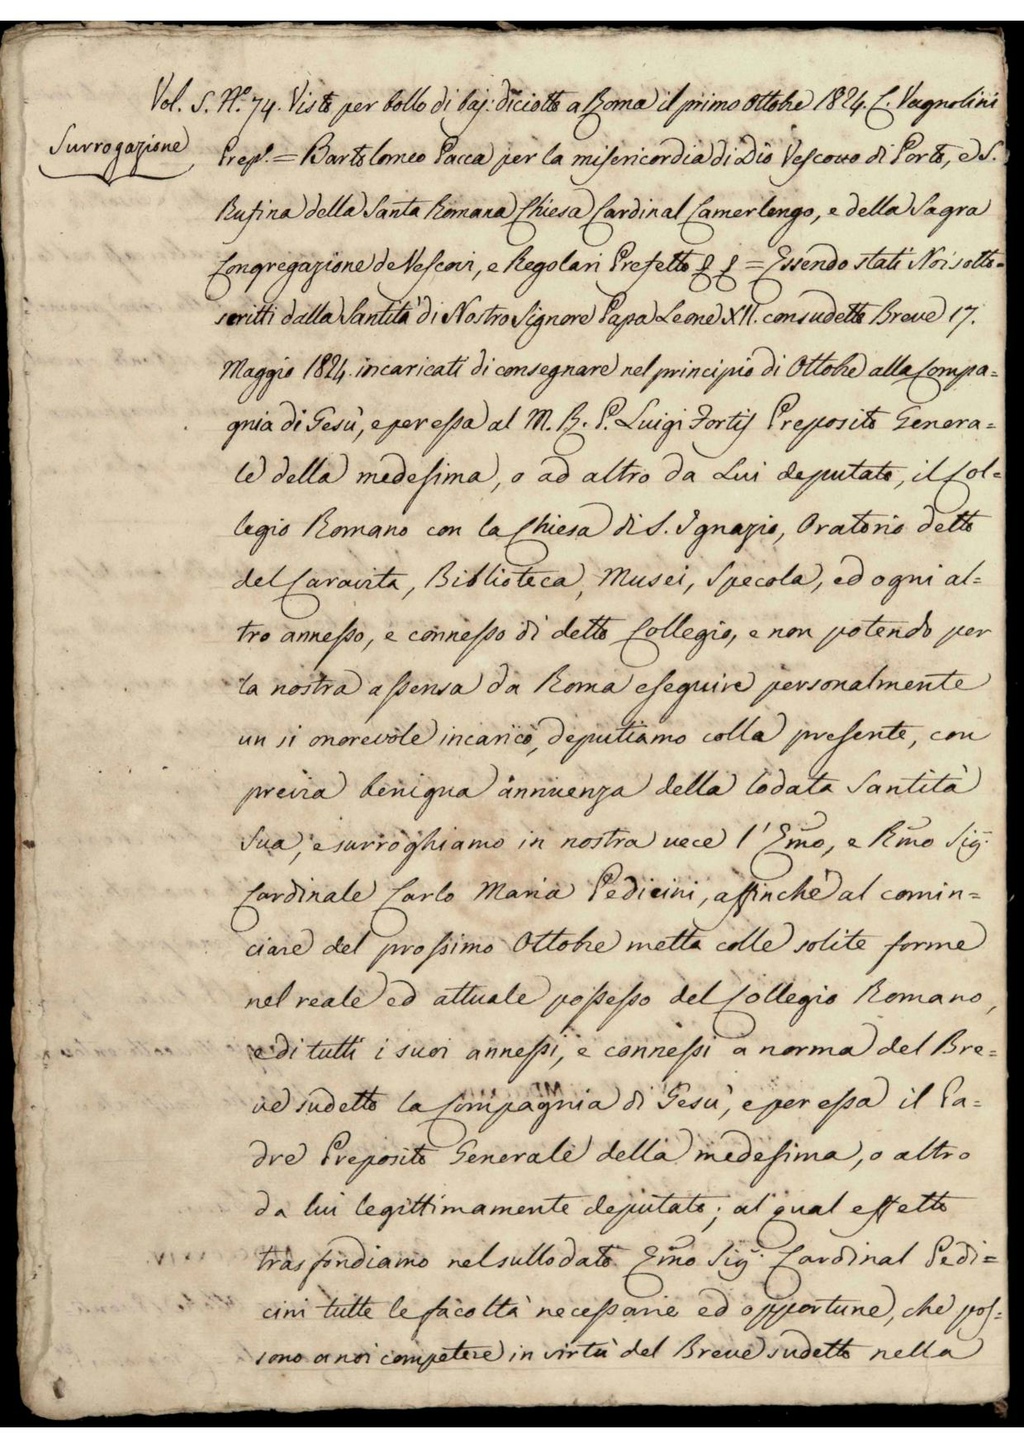 Vol. S. N.º 74. Visto per bollo di baj: diciotto a Roma il primo Ottobre 1824. C. Vagnolini
Surrogazione
Prep.º = Bartolomeo Pacca per la misericordia di Dio Vescovo di Porto, e S.
Rufina della Santa Romana Chiesa Cardinal Camerlengo, e della Sagra
Congregazione de Vescovi, e Regolari Prefetto = Essendo stati Noi sotto=
scritti dalla Santità di Nostro Signore Papa Leone XII. con sudetto Breve 17.
Maggio 1824. incaricati di consegnare nel principio di Ottobre alla Compa=
gnia di Gesù, e per essa al M. R. P. Luigi Fortis Preposito Genera=
le della medesima, o ad altro da Lui deputato, il Col=
legio Romano con la Chiesa di S. Ignazio, Oratorio detto
del Caravita, Biblioteca, Musei, Specola, ed ogni al=
tro annesso, e connesso di detto Collegio, e non potendo per
la nostra assensa da Roma eseguire personalmente
un si onorevole incarico, deputiamo colla presente, con
previa benigna annuenza della lodata Santità
Sua, e surroghiamo in nostra vece l'Emo, e Rmo Sig.
Cardinale Carlo Maria Pedicini, affinché al comin=
ciare del prossimo Ottobre metta colle solite forme
nel reale ed attuale possesso del Collegio Romano,
e di tutti i suoi annessi, e connessi a norma del Bre=
ve sudetto la Compagnia di Gesù, e per essa il Pa=
dre Preposito Generale della medesima, o altro
da lui legittimamente deputato; al qual effetto
trasfondiamo nel sullodato Emo Sig.r Cardinal Pedi=
cini tutte le facoltà necessarie ed opportune, che pos=
sono a noi competere in virtù del Breve sudetto nella